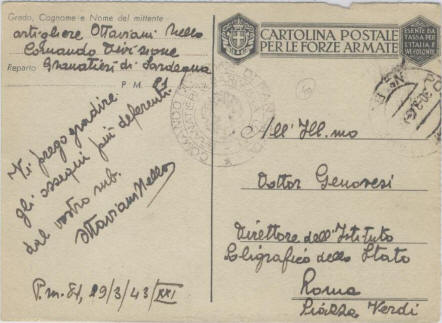 Grado, Cognome e Nome del mittente
artigliere Ottaviani Nello
Comando Divisione
Reparto Granatieri di Sardegna
P. M. 81
CARTOLINA POSTALE
PER LE FORZE ARMATE
ESENTE DA
TASSA PER
L'ITALIA
All' Ill.mo
Dottor Genovesi
Direttore dell'Istituto
Poligrafico dello Stato
Roma
Piazza Verdi
Vi prego gradire
gli ossequi più deferenti
dal vostro sub.
Ottaviani Nello
P.m. 81, 29/3/43/XXI